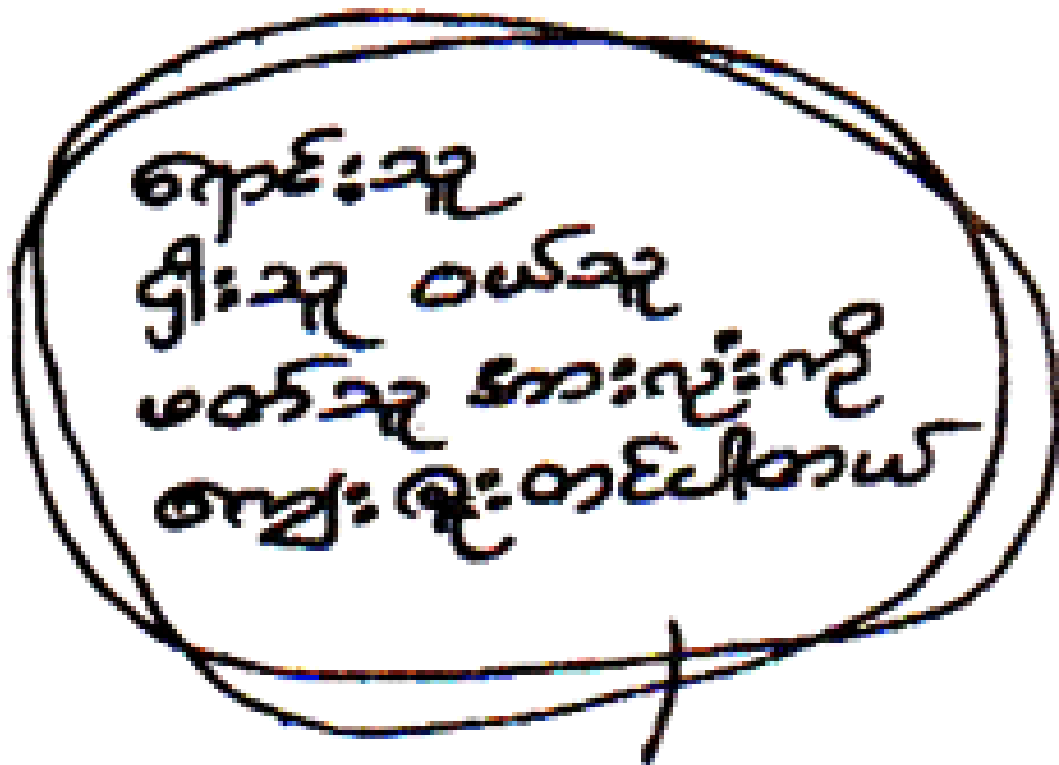 ရောင်းသူ
ငှါးသူ ဝယ်သူ
ဖတ်သူ အားလုံးကို
ကျေးဇူးတင်ပါတယ်